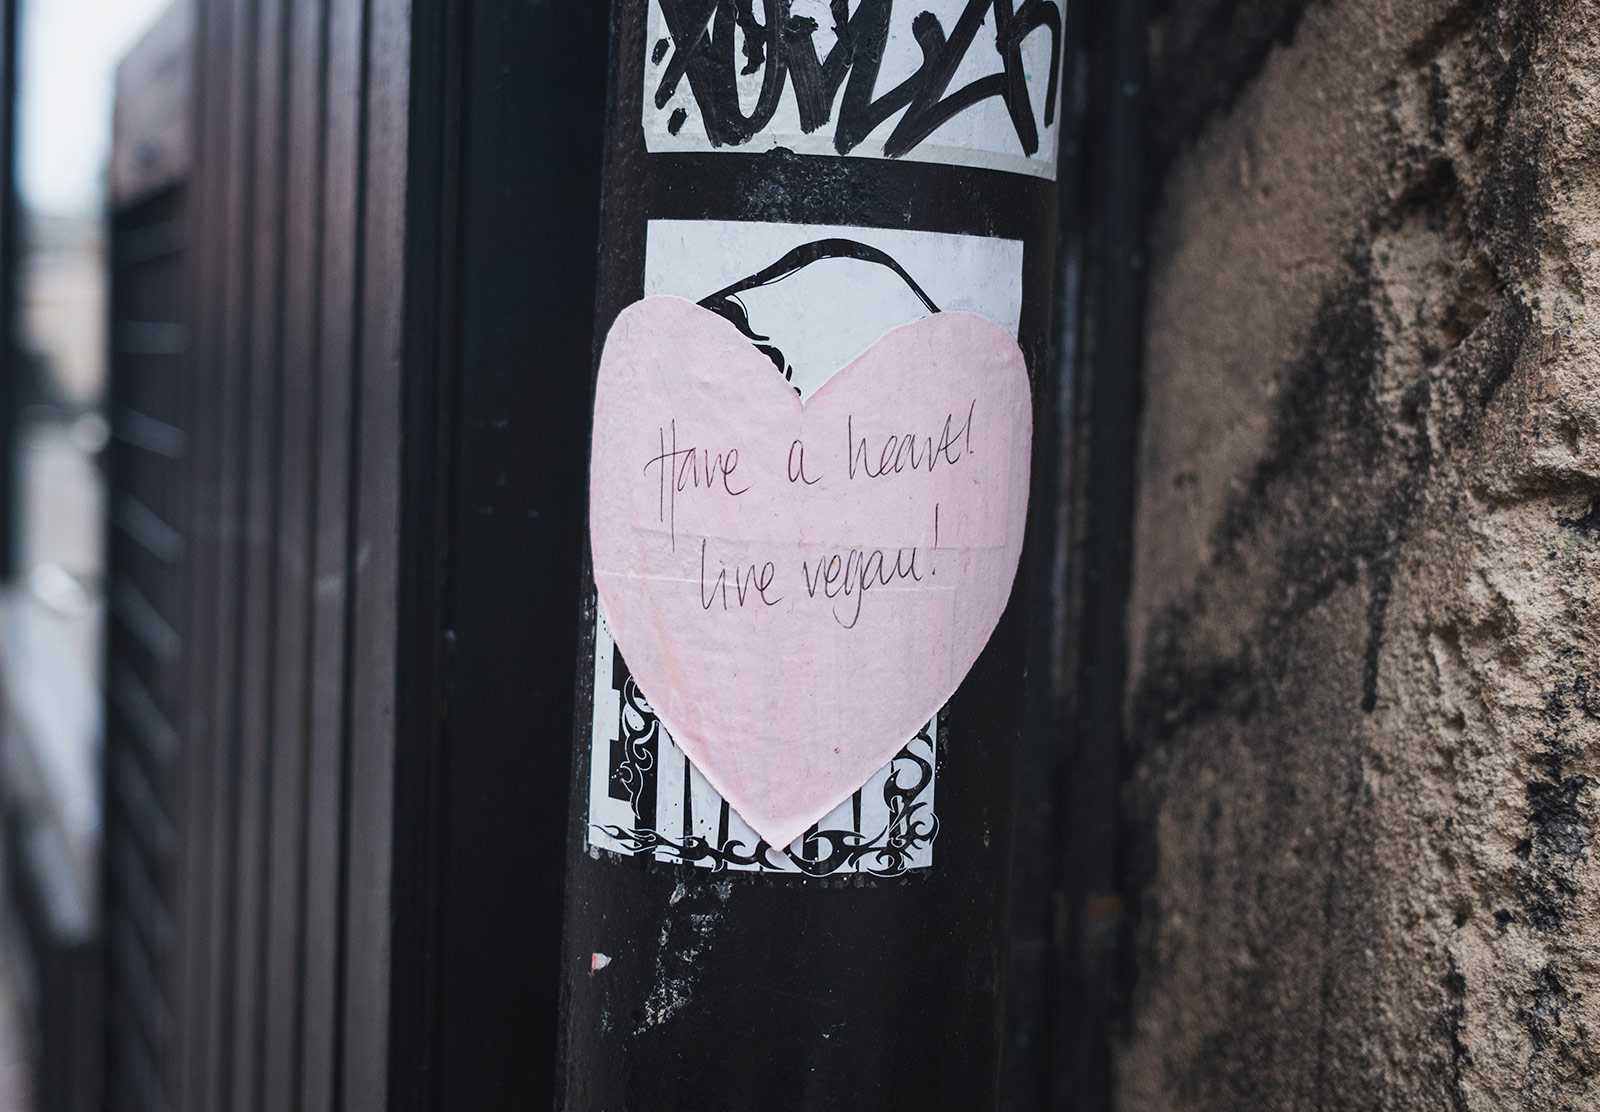 Have a heart!
live vegan!